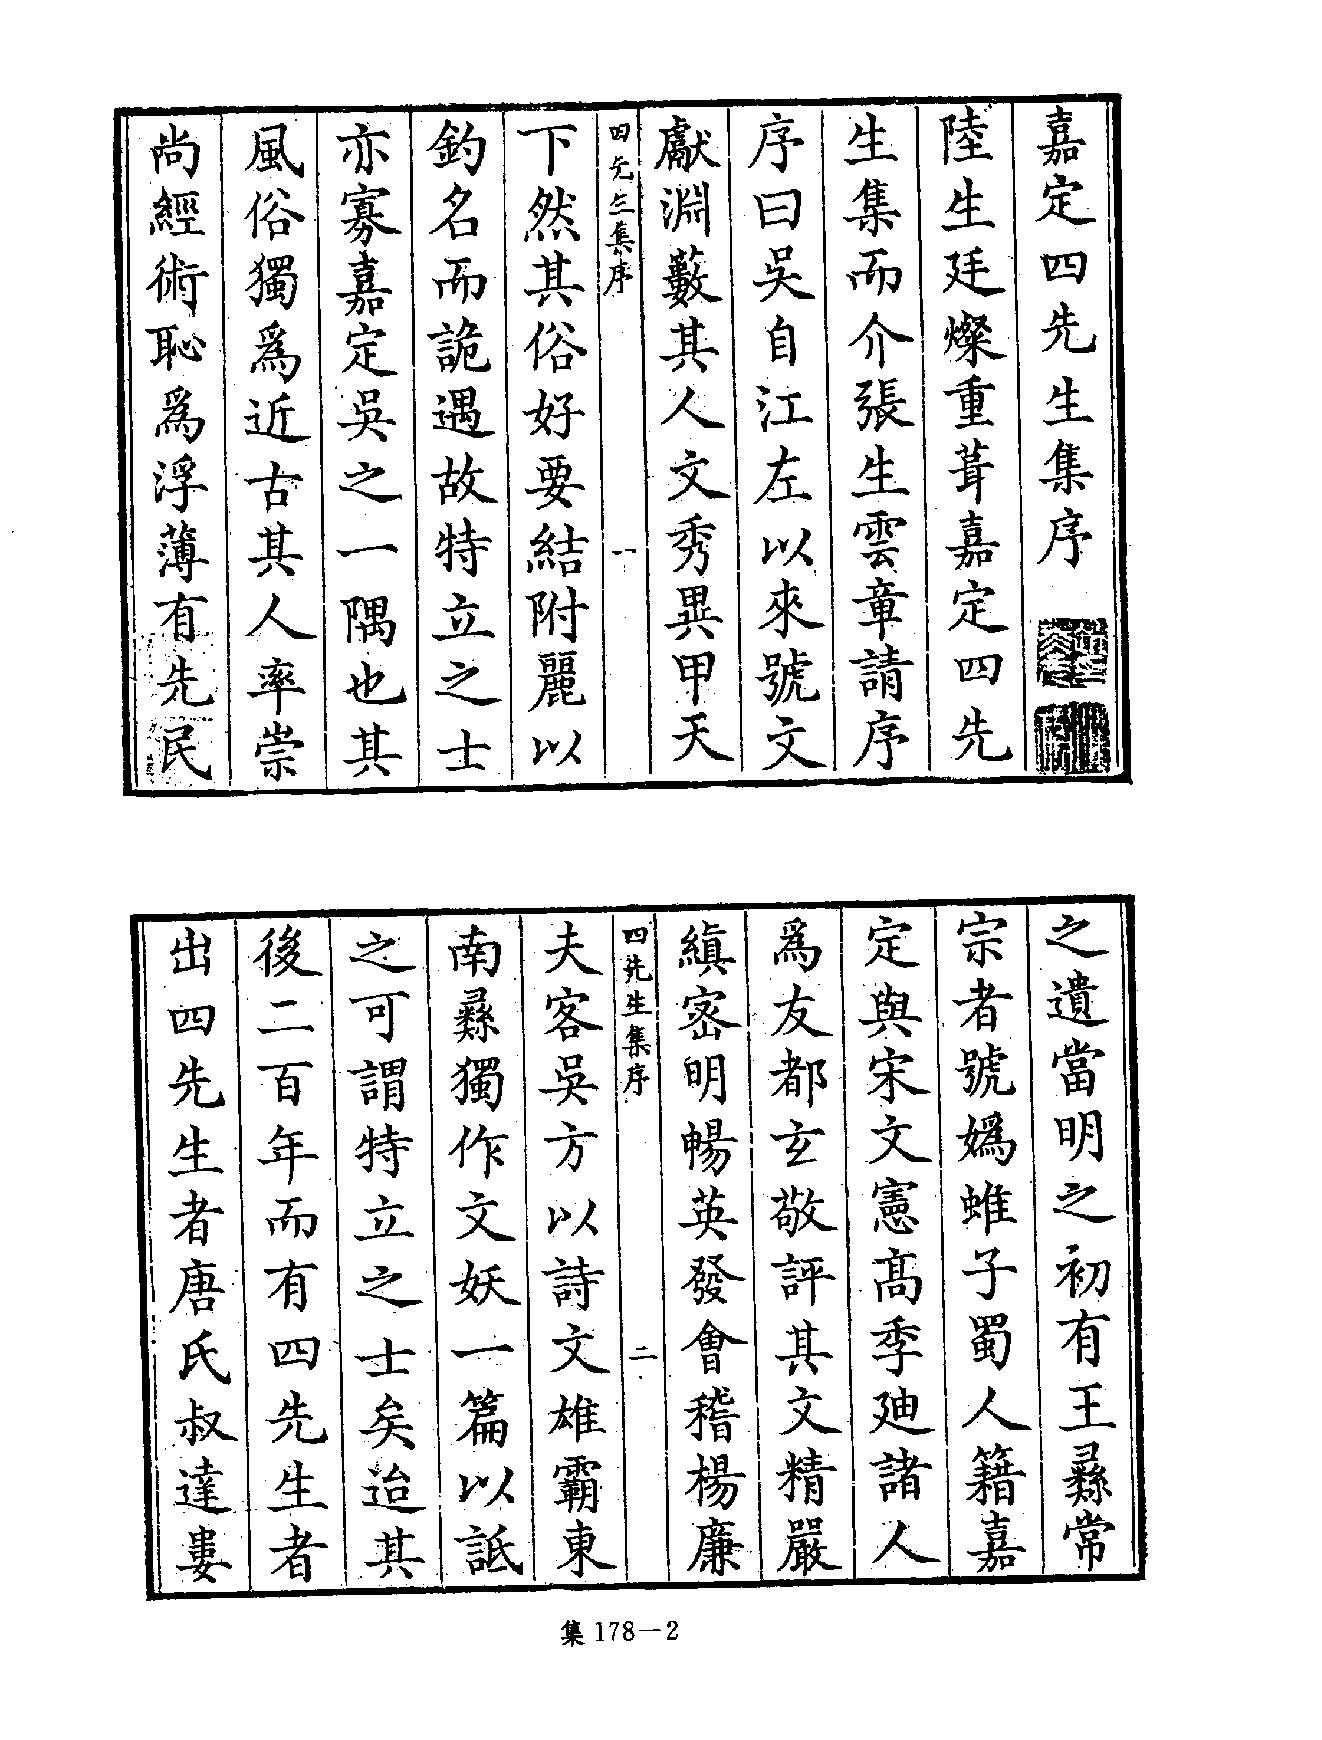 嘉定四先生集序
陸生廷燦重葺嘉定四先
生集而介張生雲章請序
序曰吳自江左以來號文
獻淵藪其人文秀異甲天
四先生集序 一
下然其俗好要結附麗以
釣名而詭遇故特立之士
亦寡嘉定吳之一隅也其
風俗獨爲近古其人率崇
尚經術恥爲浮薄有先民
之遺當明之初有王彝常
宗者號嬀蜼子蜀人籍嘉
定與宋文憲高季迪諸人
爲友都玄敬評其文精嚴
縝密明暢英發會稽楊廉
四先生集序 二
夫客吳方以詩文雄霸東
南彝獨作文妖一篇以詆
之可謂特立之士矣迨其
後二百年而有四先生者
出四先生者唐氏叔達婁
集178—2